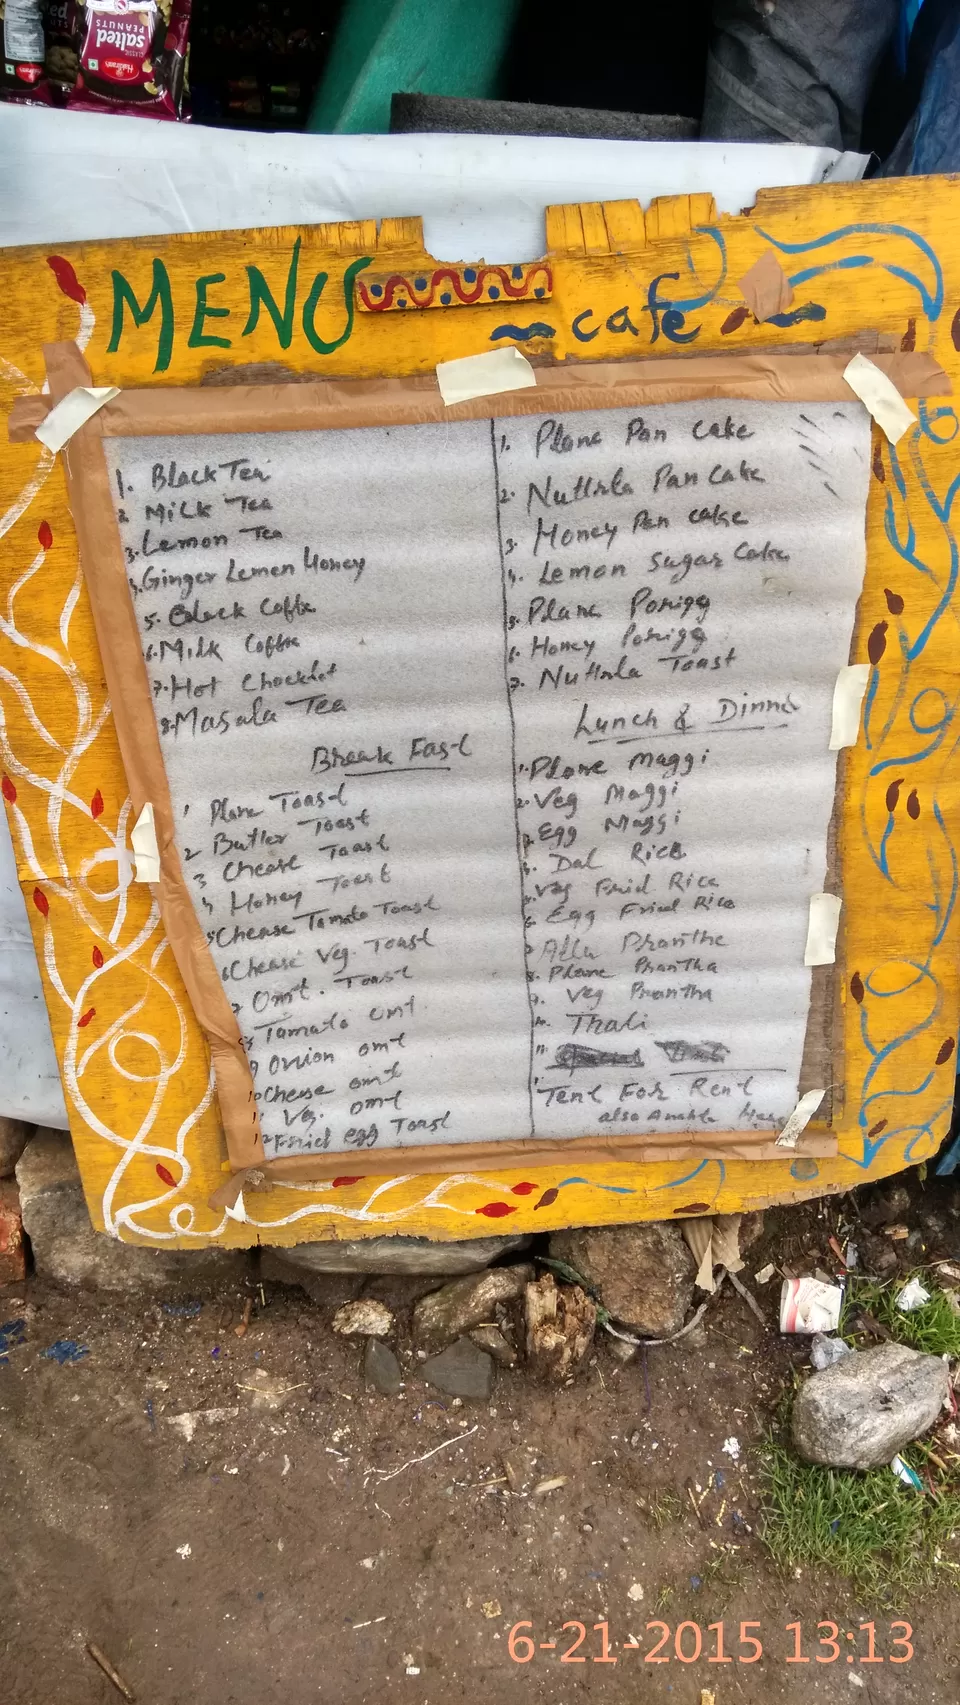 salted
PEANUTS
CLASSIC
Haldiram's
MENU
cafe
1. Black Tea
2 Milk Tea
3. Lemon Tea
4. Ginger Lemen Honey
5. Black Coffe
6. Milk Coffee
7. Hot Chocklot
8. Masala Tea
Break Fast
1 Plane Toast
2 Butter Toast
3 Chease Toast
4 Honey Toast
5 Chease Tomato Toast
6 Chease Veg. Toast
7 Omt. Toast
8 Tamato omt
9 Onion omt
10 Chease omt
11 Veg. omt
12 Fried egg Toast
1. Plane Pan Cake
2. Nuttrla Pan Cake
3. Honey Pan cake
4. Lemon Sugar Cake
5. Plane Porigg
6. Honey Porigg
7. Nuttrla Toast
Lunch & Dinner
1. Plane Maggi
2. Veg Maggi
3. Egg Maggi
4. Dal Rice
5. Veg Fried Rice
6. Egg Fried Rice
7. Allu Prantha
8. Plane Prantha
9. Veg Prantha
10. Thali
11.
Tent For Rent
also
6-21-2015 13:13